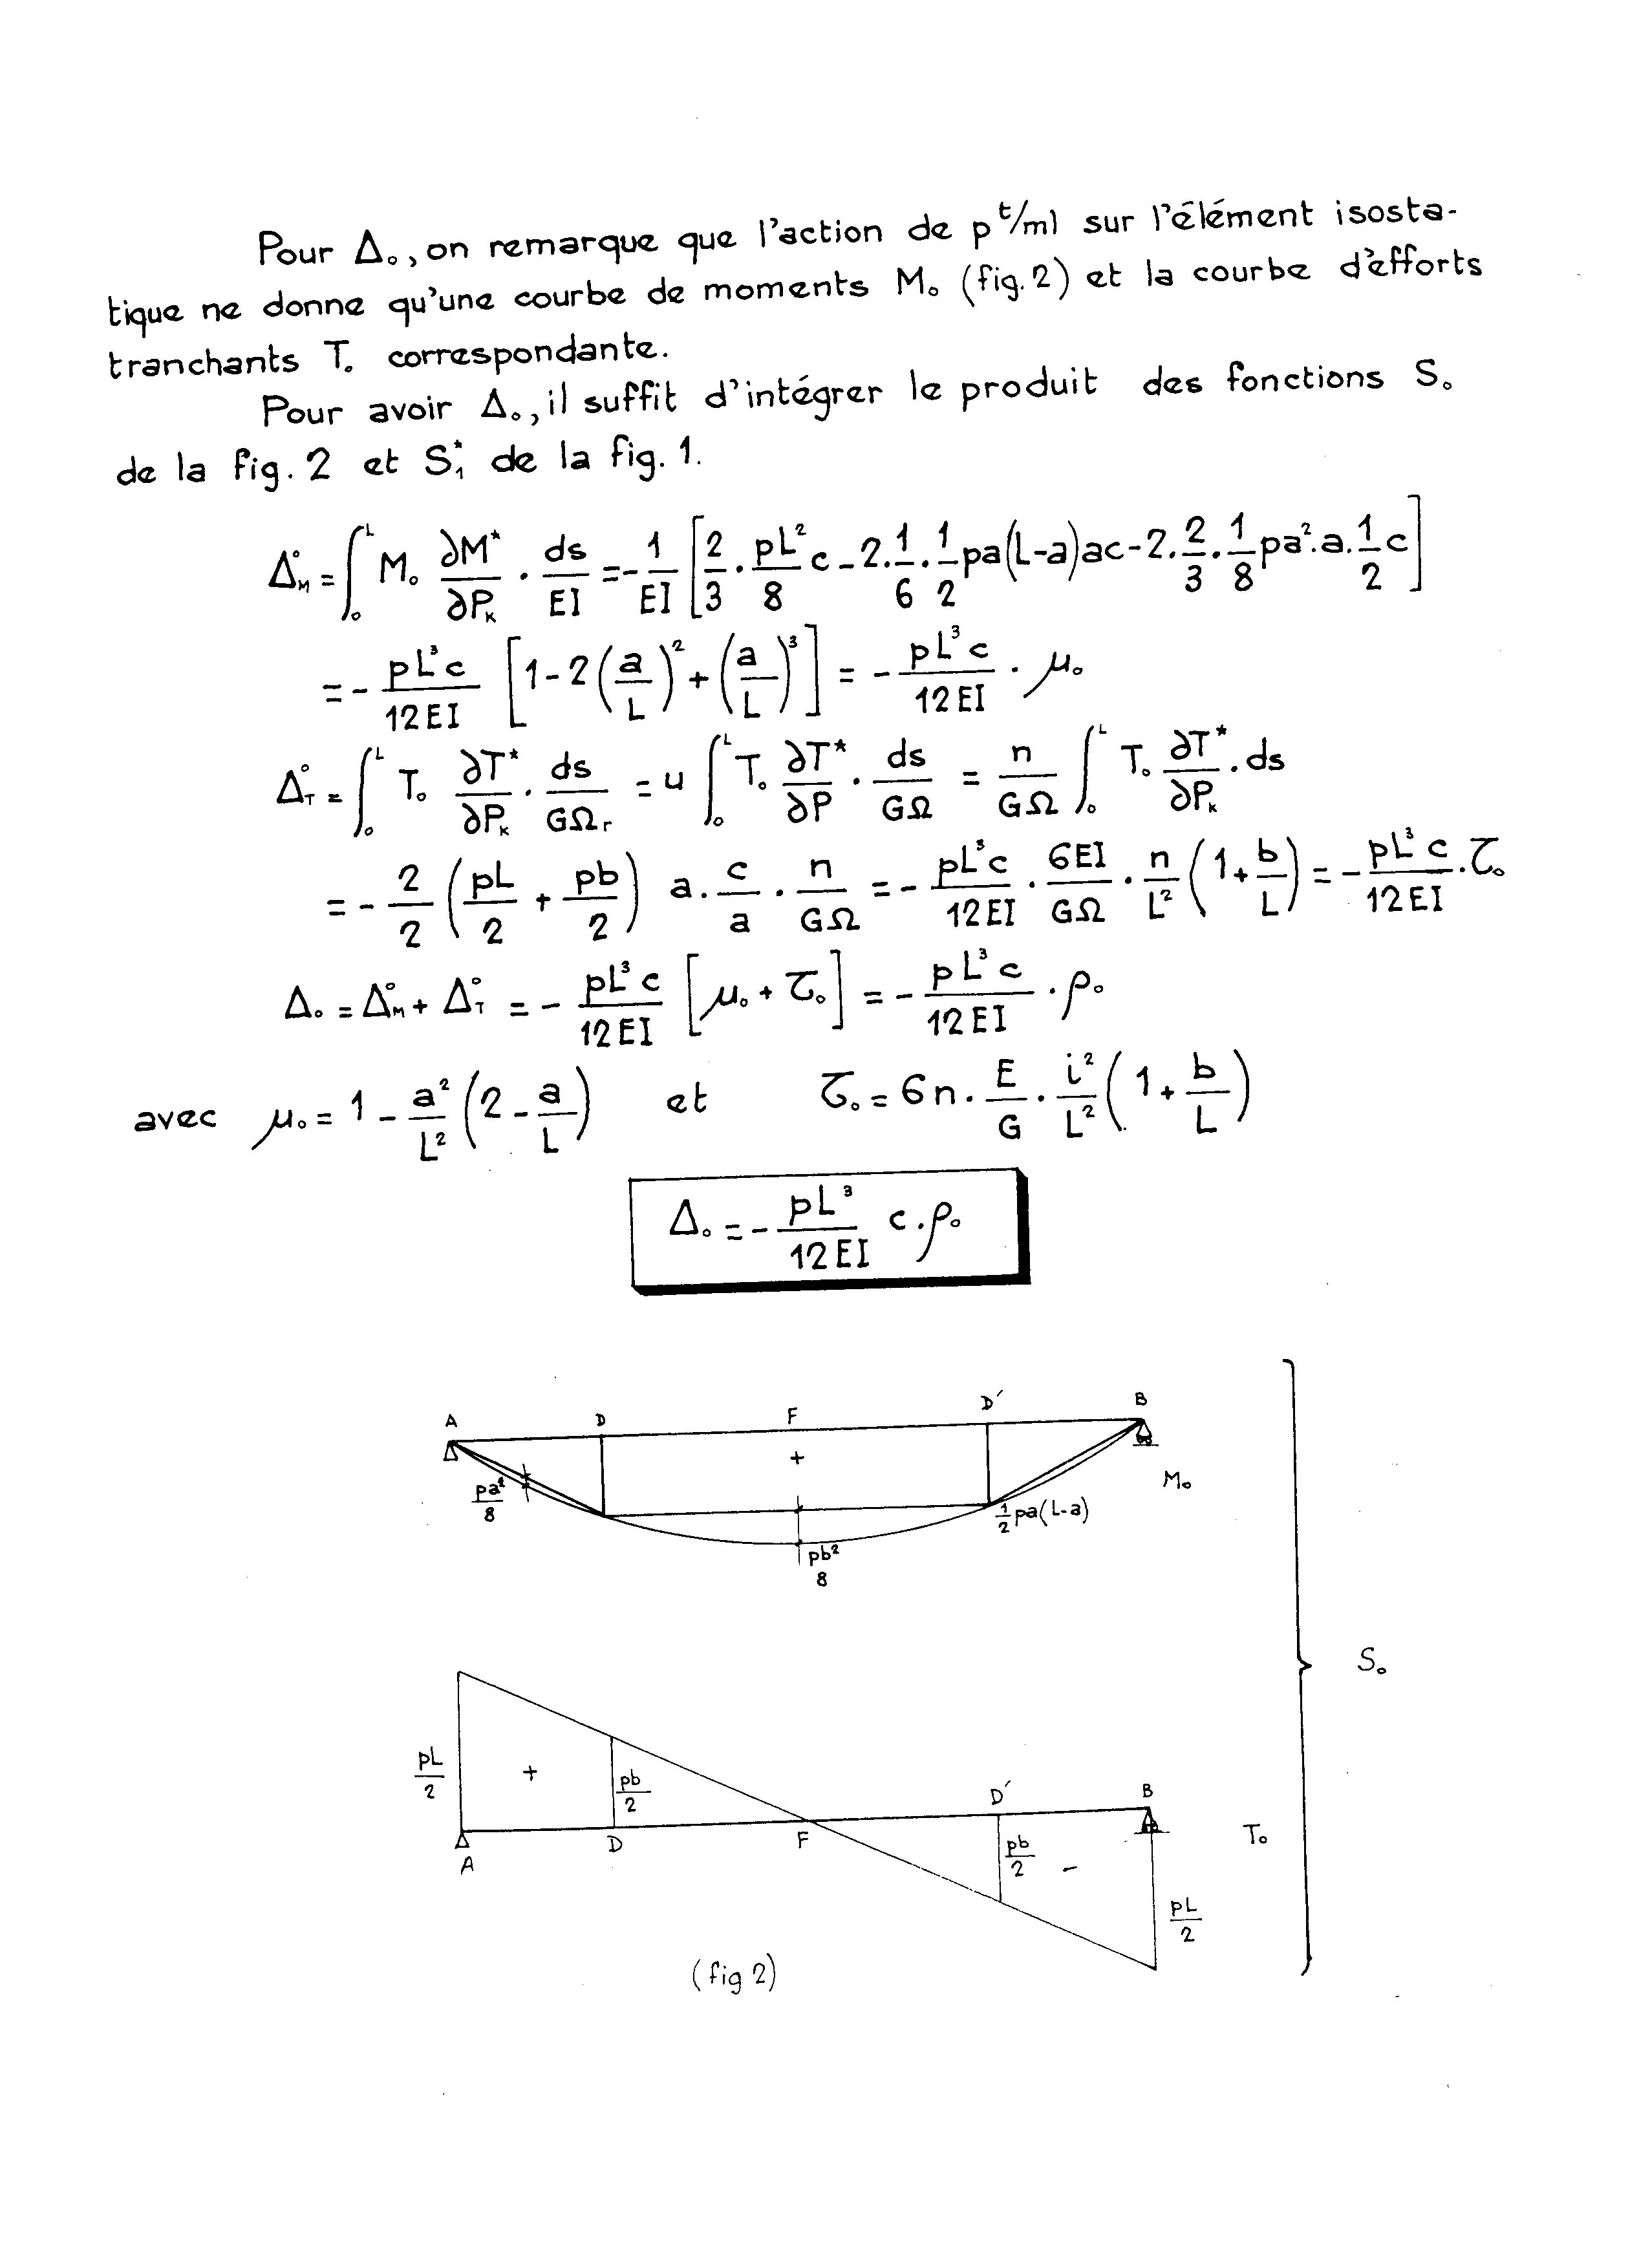 Pour Δ₀, on remarque que l'action de p t/ml sur l'élément isosta-
tique ne donne qu'une courbe de moments M₀ (fig. 2) et la courbe d'efforts
tranchants T₀ correspondante.
Pour avoir Δ₀, il suffit d'intégrer le produit des fonctions S₀
de la fig. 2 et S₁* de la fig. 1.
Δ°_M = ∫₀ᴸ M₀ ∂M*/∂P_K . ds/EI = - 1/EI [2/3 . pL²/8 c - 2. 1/6 . 1/2 pa(L-a)ac - 2. 2/3 . 1/8 pa².a. 1/2 c]
= - pL³c/12EI [1 - 2(a/L)² + (a/L)³] = - pL³c/12EI . μ₀
Δ°_T = ∫₀ᴸ T₀ ∂T*/∂P_K . ds/GΩ_r = u ∫₀ᴸ T₀ ∂T*/∂P . ds/GΩ = n/GΩ ∫₀ᴸ T₀ ∂T*/∂P_K . ds
= - 2/2 (pL/2 + pb/2) a. c/a . n/GΩ = - pL³c/12EI . 6EI/GΩ . n/L² (1 + b/L) = - pL³c/12EI . τ₀
Δ₀ = Δ°_M + Δ°_T = - pL³c/12EI [μ₀ + τ₀] = - pL³c/12EI . ρ₀
avec μ₀ = 1 - a²/L² (2 - a/L) et τ₀ = 6n. E/G . i²/L² (1 + b/L)
Δ₀ = - pL³/12EI c . ρ₀
A D F D' B
+
M₀
pa²/8
1/2 pa(L-a)
pb²/8
S₀
pL/2 + pb/2
D' B
A D F
pb/2 -
T₀
pL/2
(fig 2)